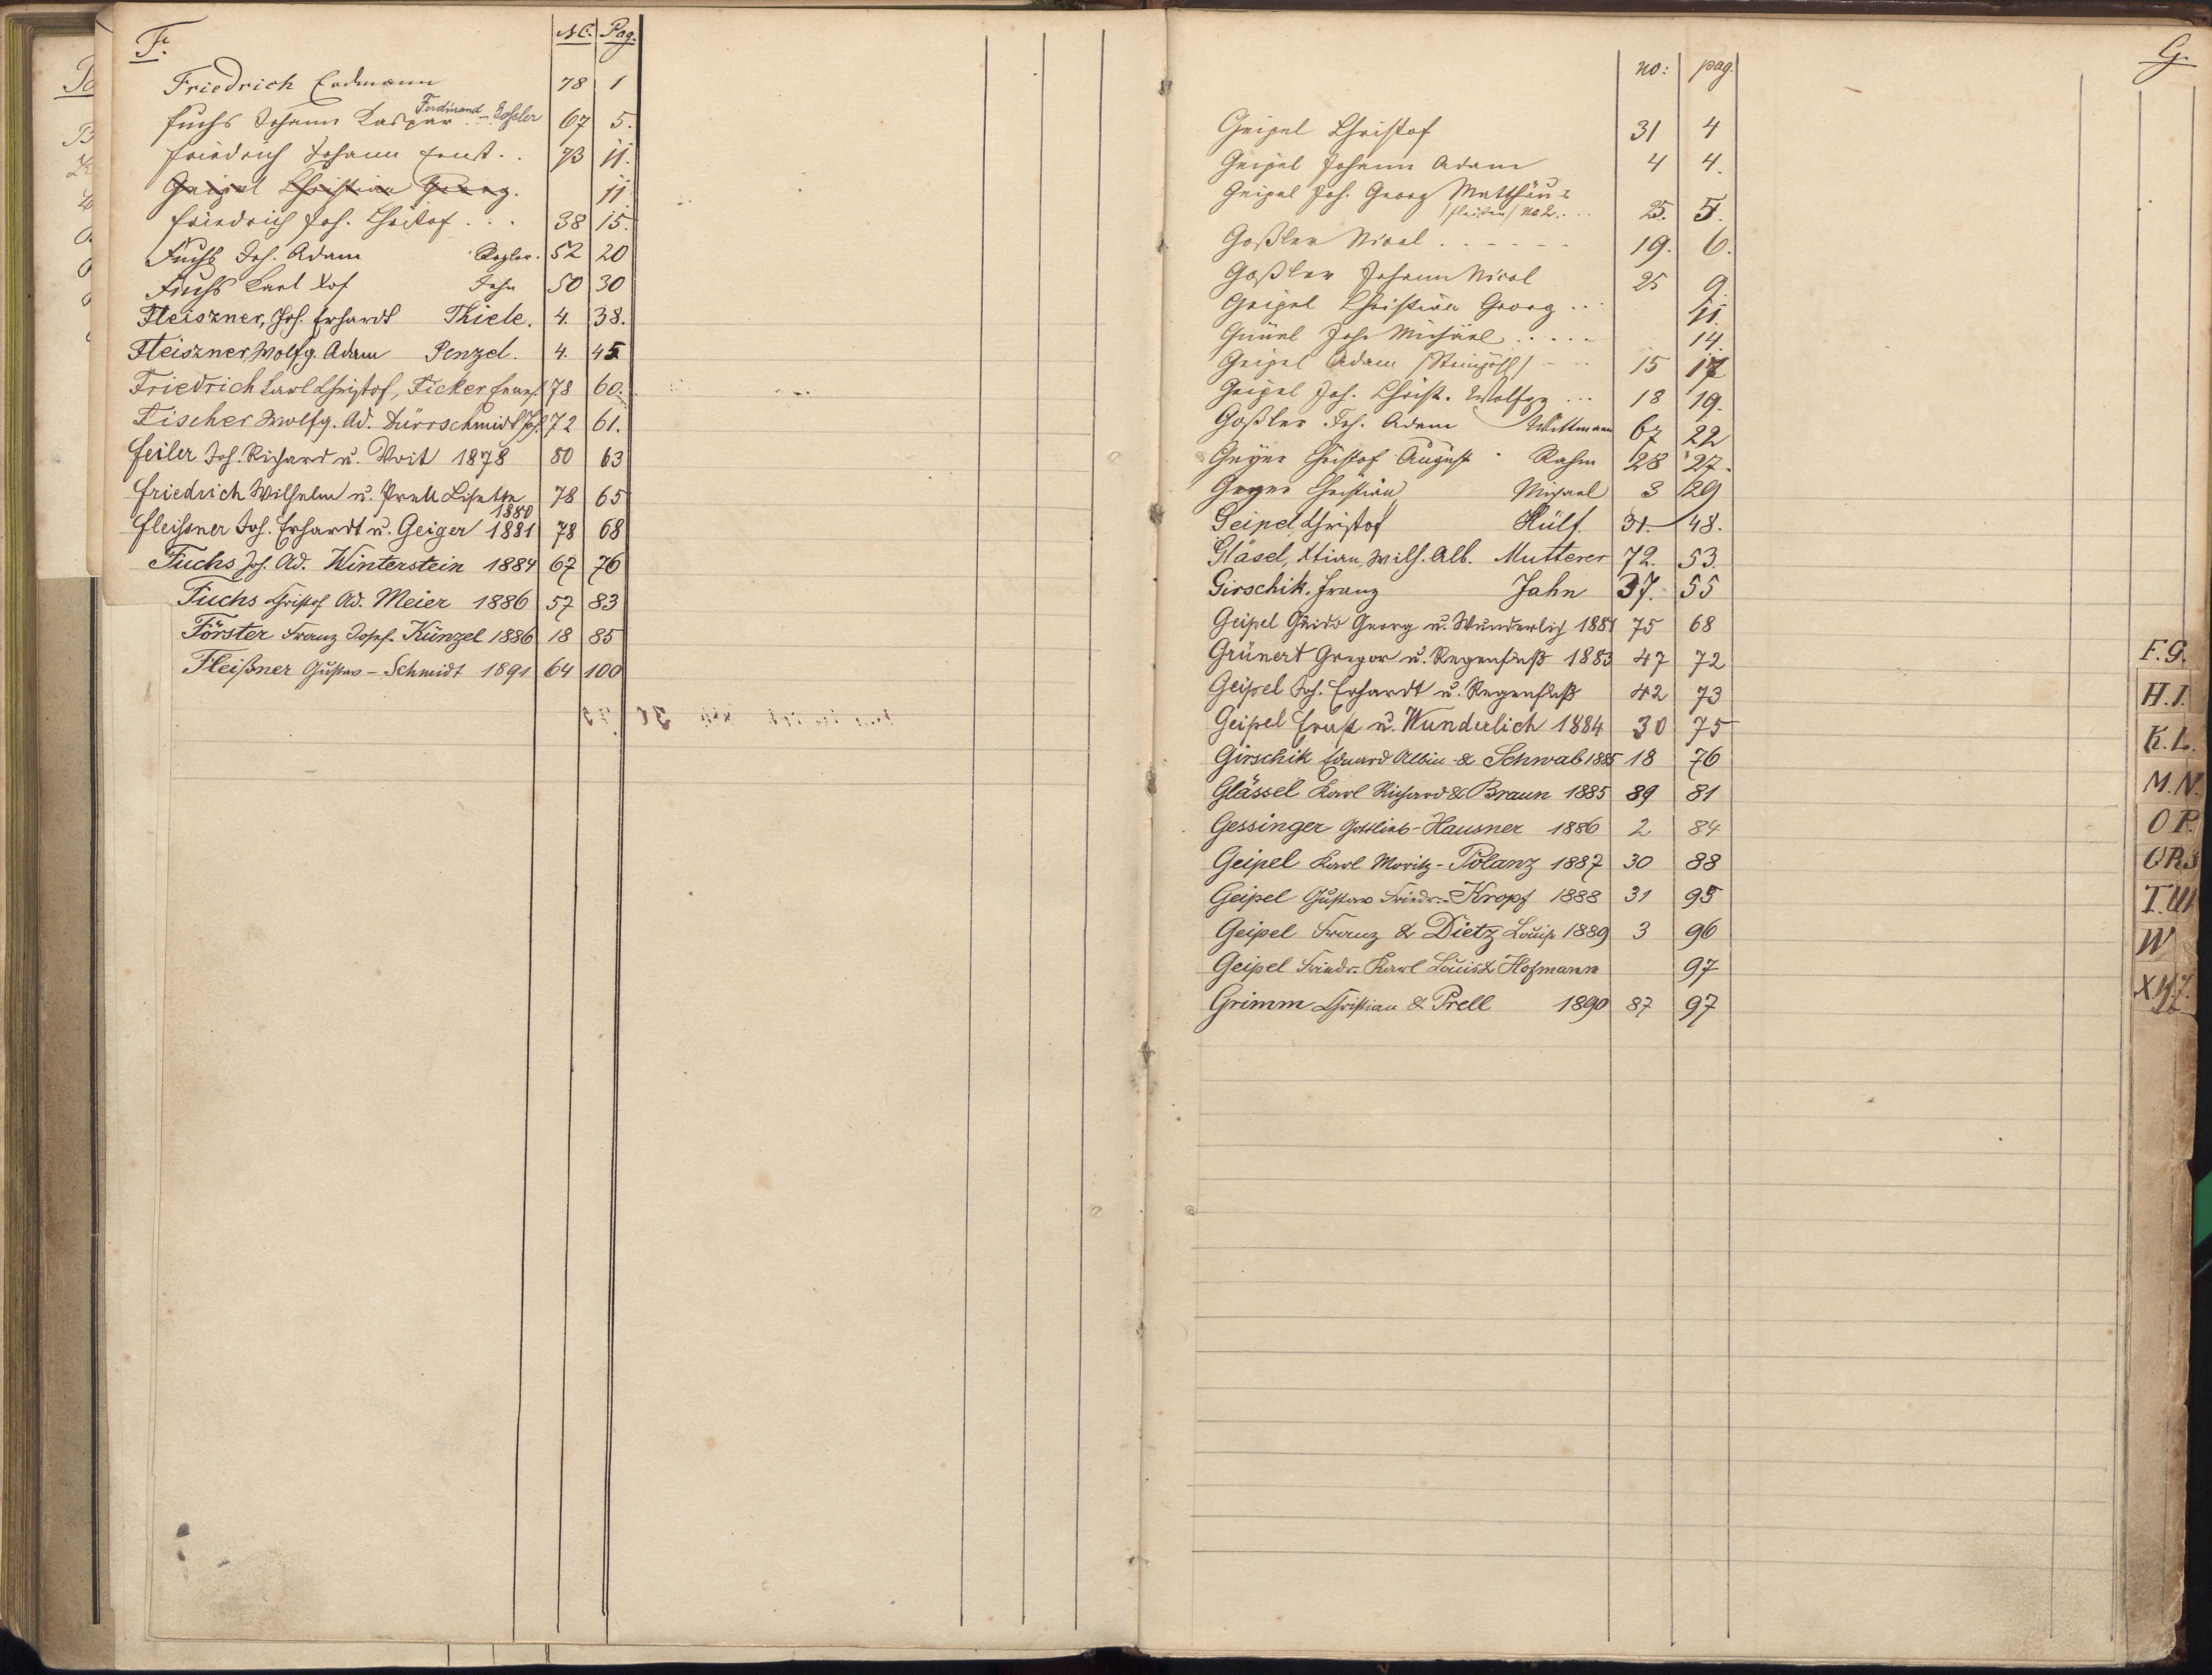 F.
NC. Pag.
Friedrich Erdmann 78 1
Fuchs Johann Kaspar Ferdinand - Goßler 67 5.
Friedrich Johann Ernst . . 73 11.
Geipel Christian Georg. 11.
Friedrich Joh. Christof . . . 38 15.
Fuchs Joh. Adam 52 20
Fuchs Karl Xof Jahn 50 30
Fleiszner, Joh. Erhardt Thiele. 4. 38.
Fleiszner, Wolfg. Adam Penzel. 4. 45
Friedrich Karl Christof, Ficker Ernest. 78 60.
Fischer Wolfg. Ad. Dürrschmidt Joh. 72 61.
Feiler Joh. Richard u. Voit 1878 80 63
Friedrich Wilhelm u. Prell Lisette 1880 78 65
Fleissner Joh. Erhardt u. Geiger 1881 78 68
Fuchs Joh. Ad. Winterstein 1884 67 76
Fuchs Christof Ad. Meier 1886 57 83
Förster Franz Josef. Künzel 1886 18 85
Fleißner Gustav - Schmidt 1891 64 100
G.
no: pag.
Geipel Christof 31 4
Geipel Johann Adam 4 4.
Geipel Joh. Georg Matthäus
/Fleißen/ no 2. . . . 25. 5.
Goßler Nicol . . . . . . 19. 6.
Goßler Johann Nicol 25 9.
Geipel Christian Georg . . . 11.
Johann Michael . . . . . 14.
Geipel Adam /Steinpöhl/ - . . 15 17
Geipel Joh. Christ. Wolfgg . . . 18 19.
Goßler Joh. Adam Wittmann 67 22
Geyer Christof August Rahm 28 27.
Geyer Christian Michael 3 29
Geipel Christof Hülf. 31. 48.
Gläsel, Xtian, Wilh. Alb. Mutterer 72. 53.
Girschik, Franz Jahn 37. 55
Geipel Guido Georg u. Wunderlich 1881 75 68
Grünert Gregor u. Regenfuß 1883 47 72
Geipel Joh. Erhardt u. Regenfuß 42 73
Geipel Ernst u. Wunderlich 1884 30 75
Girschik Eduard Albin & Schwab 1885 18 76
Glässel Karl Richard & Braun 1885 89 81
Gessinger Gottlieb - Hausner 1886 2 84
Geipel Karl Moritz - Polanz 1887 30 88
Geipel Gustav Friedr. - Kropf 1888 31 95
Geipel Franz & Dietz Louise 1889 3 96
Geipel Friedr. Karl Louis & Hofmann 97
Grimm Christian & Prell 1890 87 97
F.G.
H.I.
K.L.
M.N.
O P.
QRS
T.U
W
X.Y.Z.